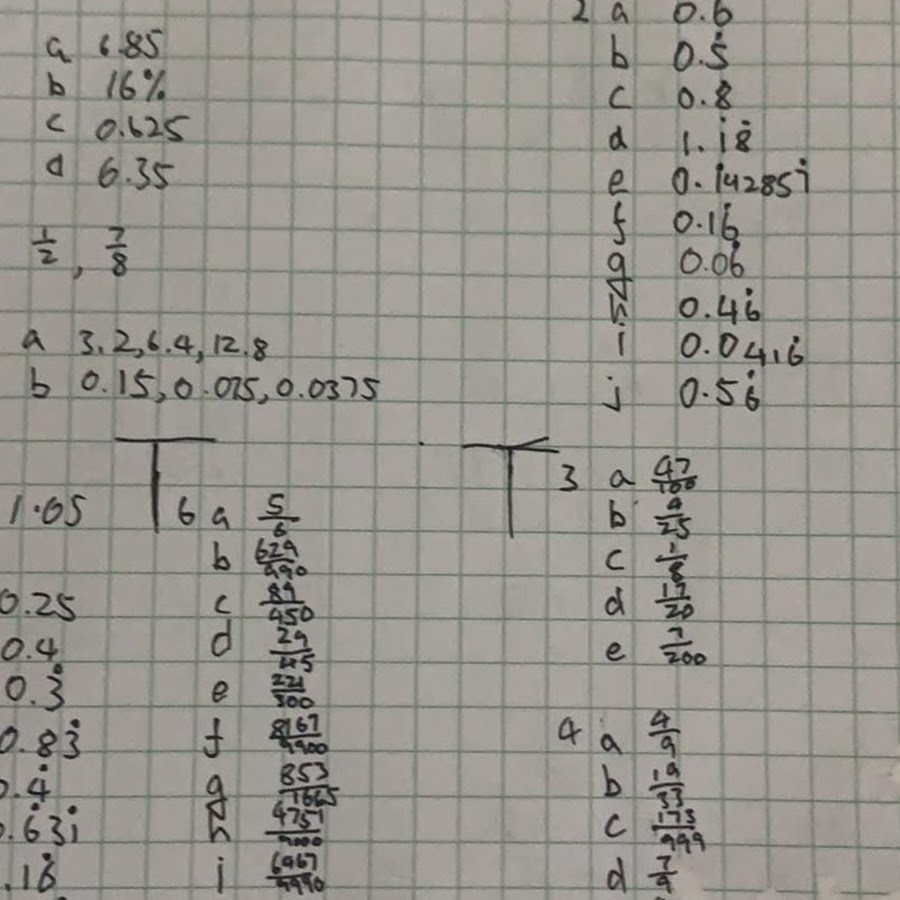 a 6.85
b 16%
c 0.625
d 6.35
1/2, 7/8
a 3.2, 6.4, 12.8
b 0.15, 0.075, 0.0375
1.05
0.25
0.4
0.3̇
0.83̇
0.4̇
.6̇3i̇
.16̇
6 a 5/6
b 629/990
c 89/450
d 29/45
e 221/300
f 8167/9900
g 853/1665
h 4757/9000
i 6967/9990
2 a 0.6
b 0.5̇
c 0.8
d 1.1̇8̇
e 0.1̇428571̇
f 0.16̇
g 0.06̇
h 0.46̇
i 0.0416̇
j 0.56̇
3 a 47/100
b 9/25
c 1/8
d 17/20
e 7/200
4 a 4/9
b 19/33
c 173/999
d 7/9